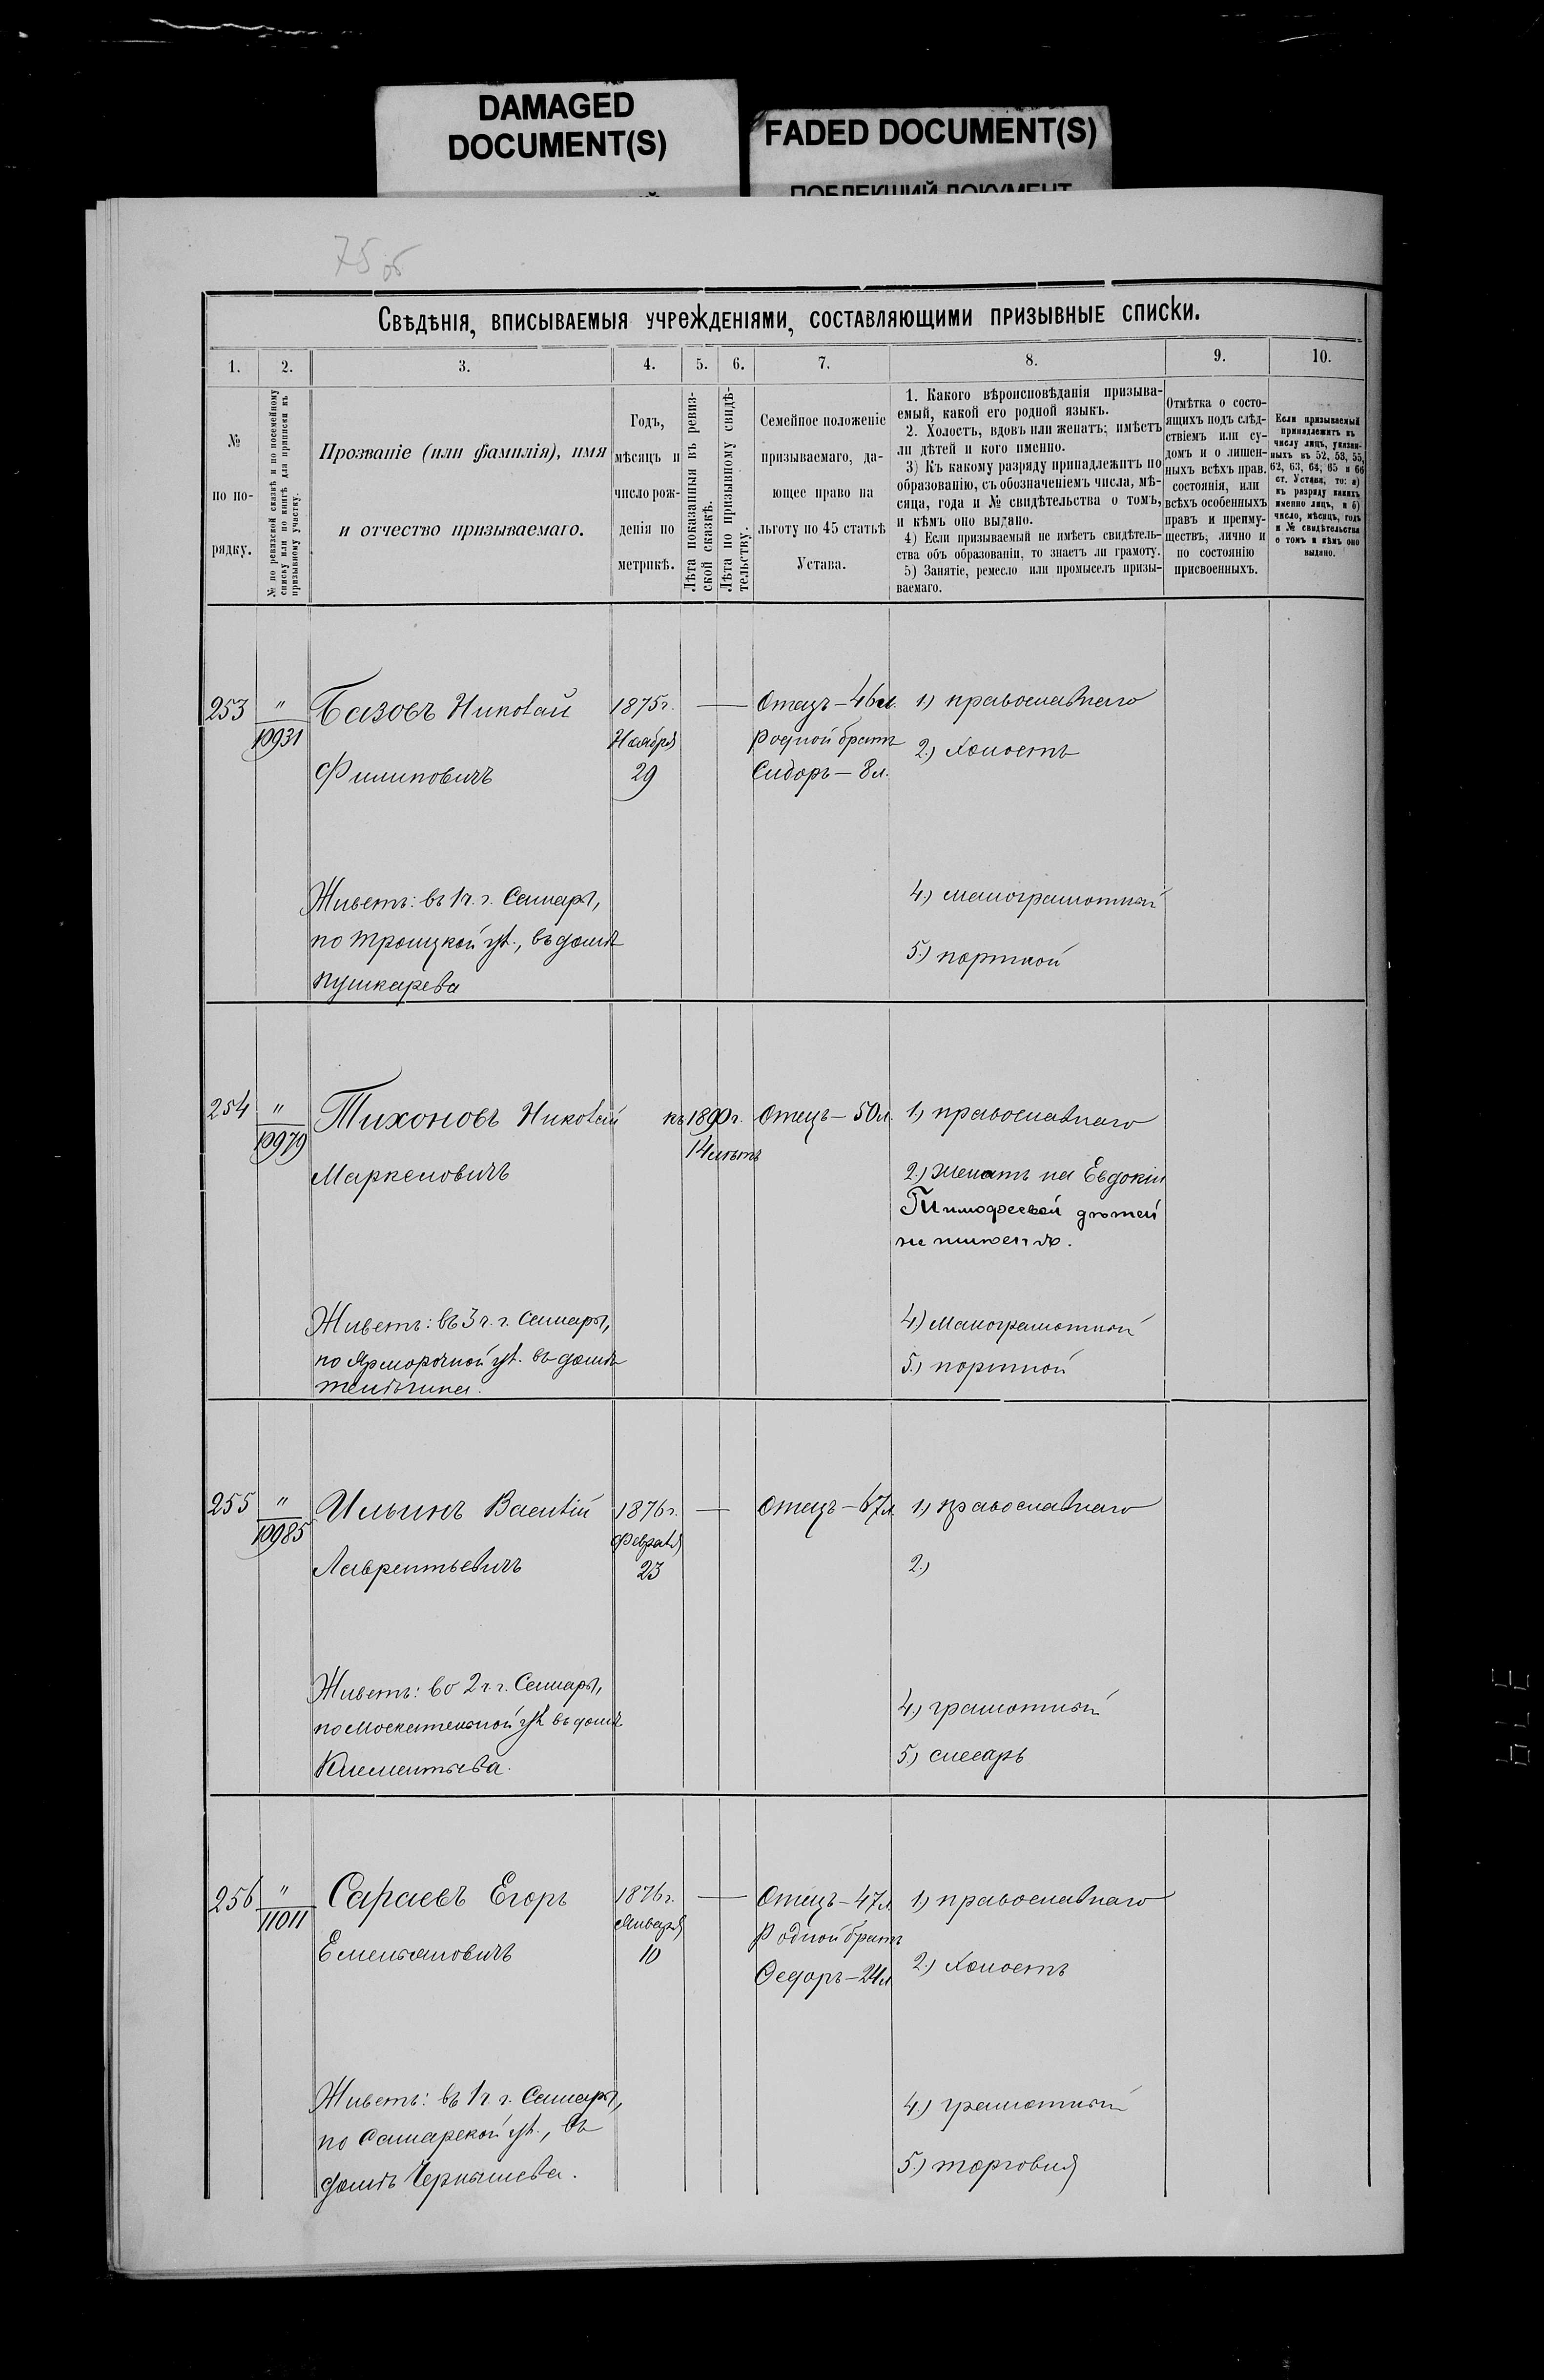 DAMAGED
DOCUMENT(S)
FADED DOCUMENT(S)
ПОБЛЕКШИЙ ДОКУМЕНТ
75 об
Свѣдѣнія, вписываемыя учрежденіями, составляющими призывные списки.
1.
2.
3.
4.
5.
6.
7.
8.
9.
10.
№
по по-
рядку.
№ по ревизской сказкѣ и по посемейному
списку или по книгѣ для приписки къ
призывному участку.
Прозваніе (или фамилія), имя
и отчество призываемаго.
Годъ,
мѣсяцъ и
число рож-
денія по
метрикѣ.
Лѣта показанныя въ ревиз-
ской сказкѣ.
Лѣта по призывному свидѣ-
тельству.
Семейное положеніе
призываемаго, да-
ющее право на
льготу по 45 статьѣ
Устава.
1. Какого вѣроисповѣданія призыва-
емый, какой его родной языкъ.
2. Холостъ, вдовъ или женатъ; имѣетъ
ли дѣтей и кого именно.
3) Къ какому разряду принадлежитъ по
образованію, съ обозначеніемъ числа, мѣ-
сяца, года и № свидѣтельства о томъ,
и кѣмъ оно выдано.
4) Если призываемый не имѣетъ свидѣтель-
ства объ образованіи, то знаетъ ли грамоту.
5) Занятіе, ремесло или промыселъ призы-
ваемаго.
Отмѣтка о состо-
ящихъ подъ слѣд-
ствіемъ или су-
домъ и о лишен-
ныхъ всѣхъ прав.
состоянія, или
всѣхъ особенныхъ
правъ и преиму-
ществъ, лично и
по состоянію
присвоенныхъ.
Если призываемый
принадлежитъ къ
числу лицъ, указан-
ныхъ въ 52, 53, 55,
62, 63, 64, 65 и 66
ст. Устава, то: а)
къ разряду какихъ
именно лицъ, и б)
число, мѣсяцъ, годъ
и № свидѣтельства
о томъ и кѣмъ оно
выдано.
253
"
10931
Базовъ Николай
Филиповичъ
1875 г.
Ноября
29
—
Отецъ — 46 л.
Родной братъ
Сидоръ — 8 л.
1) православнаго
2.) Холостъ
4.) малограмотный
5.) портной
Живетъ: въ 1 ч. г. Самары,
по Троицкой ул., въ домѣ
Пушкарева
254
"
10979
Тихоновъ Николай
Маркеловичъ
къ 1890 г.
14 лѣтъ
Отецъ — 50 л.
1) православнаго
2.) Женатъ на Евдокіи
Тимофеевой дѣтей
не имѣетъ.
4) Малограмотный
5.) портной
Живетъ: въ 3 ч. г. Самары,
по Ярморочной ул. въ домѣ
255
"
10985
Ильинъ Василій
Лаврентьевичъ
1876 г.
Февраля
23
—
Отецъ — 67 л.
1) православнаго
2.)
4.) грамотный
5.) слесарь
Живетъ: во 2 ч. г. Самары,
по Москательной ул. въ домѣ
Клементьева.
256
"
11011
Сараевъ Егоръ
Емельяновичъ
1876 г.
Января
10
—
Отецъ — 47 л.
Родной братъ
Ѳедоръ — 24 л.
1) православнаго
2.) Холостъ
4.) грамотный
5.) торговля
Живетъ: въ 1 ч. г. Самары,
по Самарской ул., въ
домѣ Чернышева.